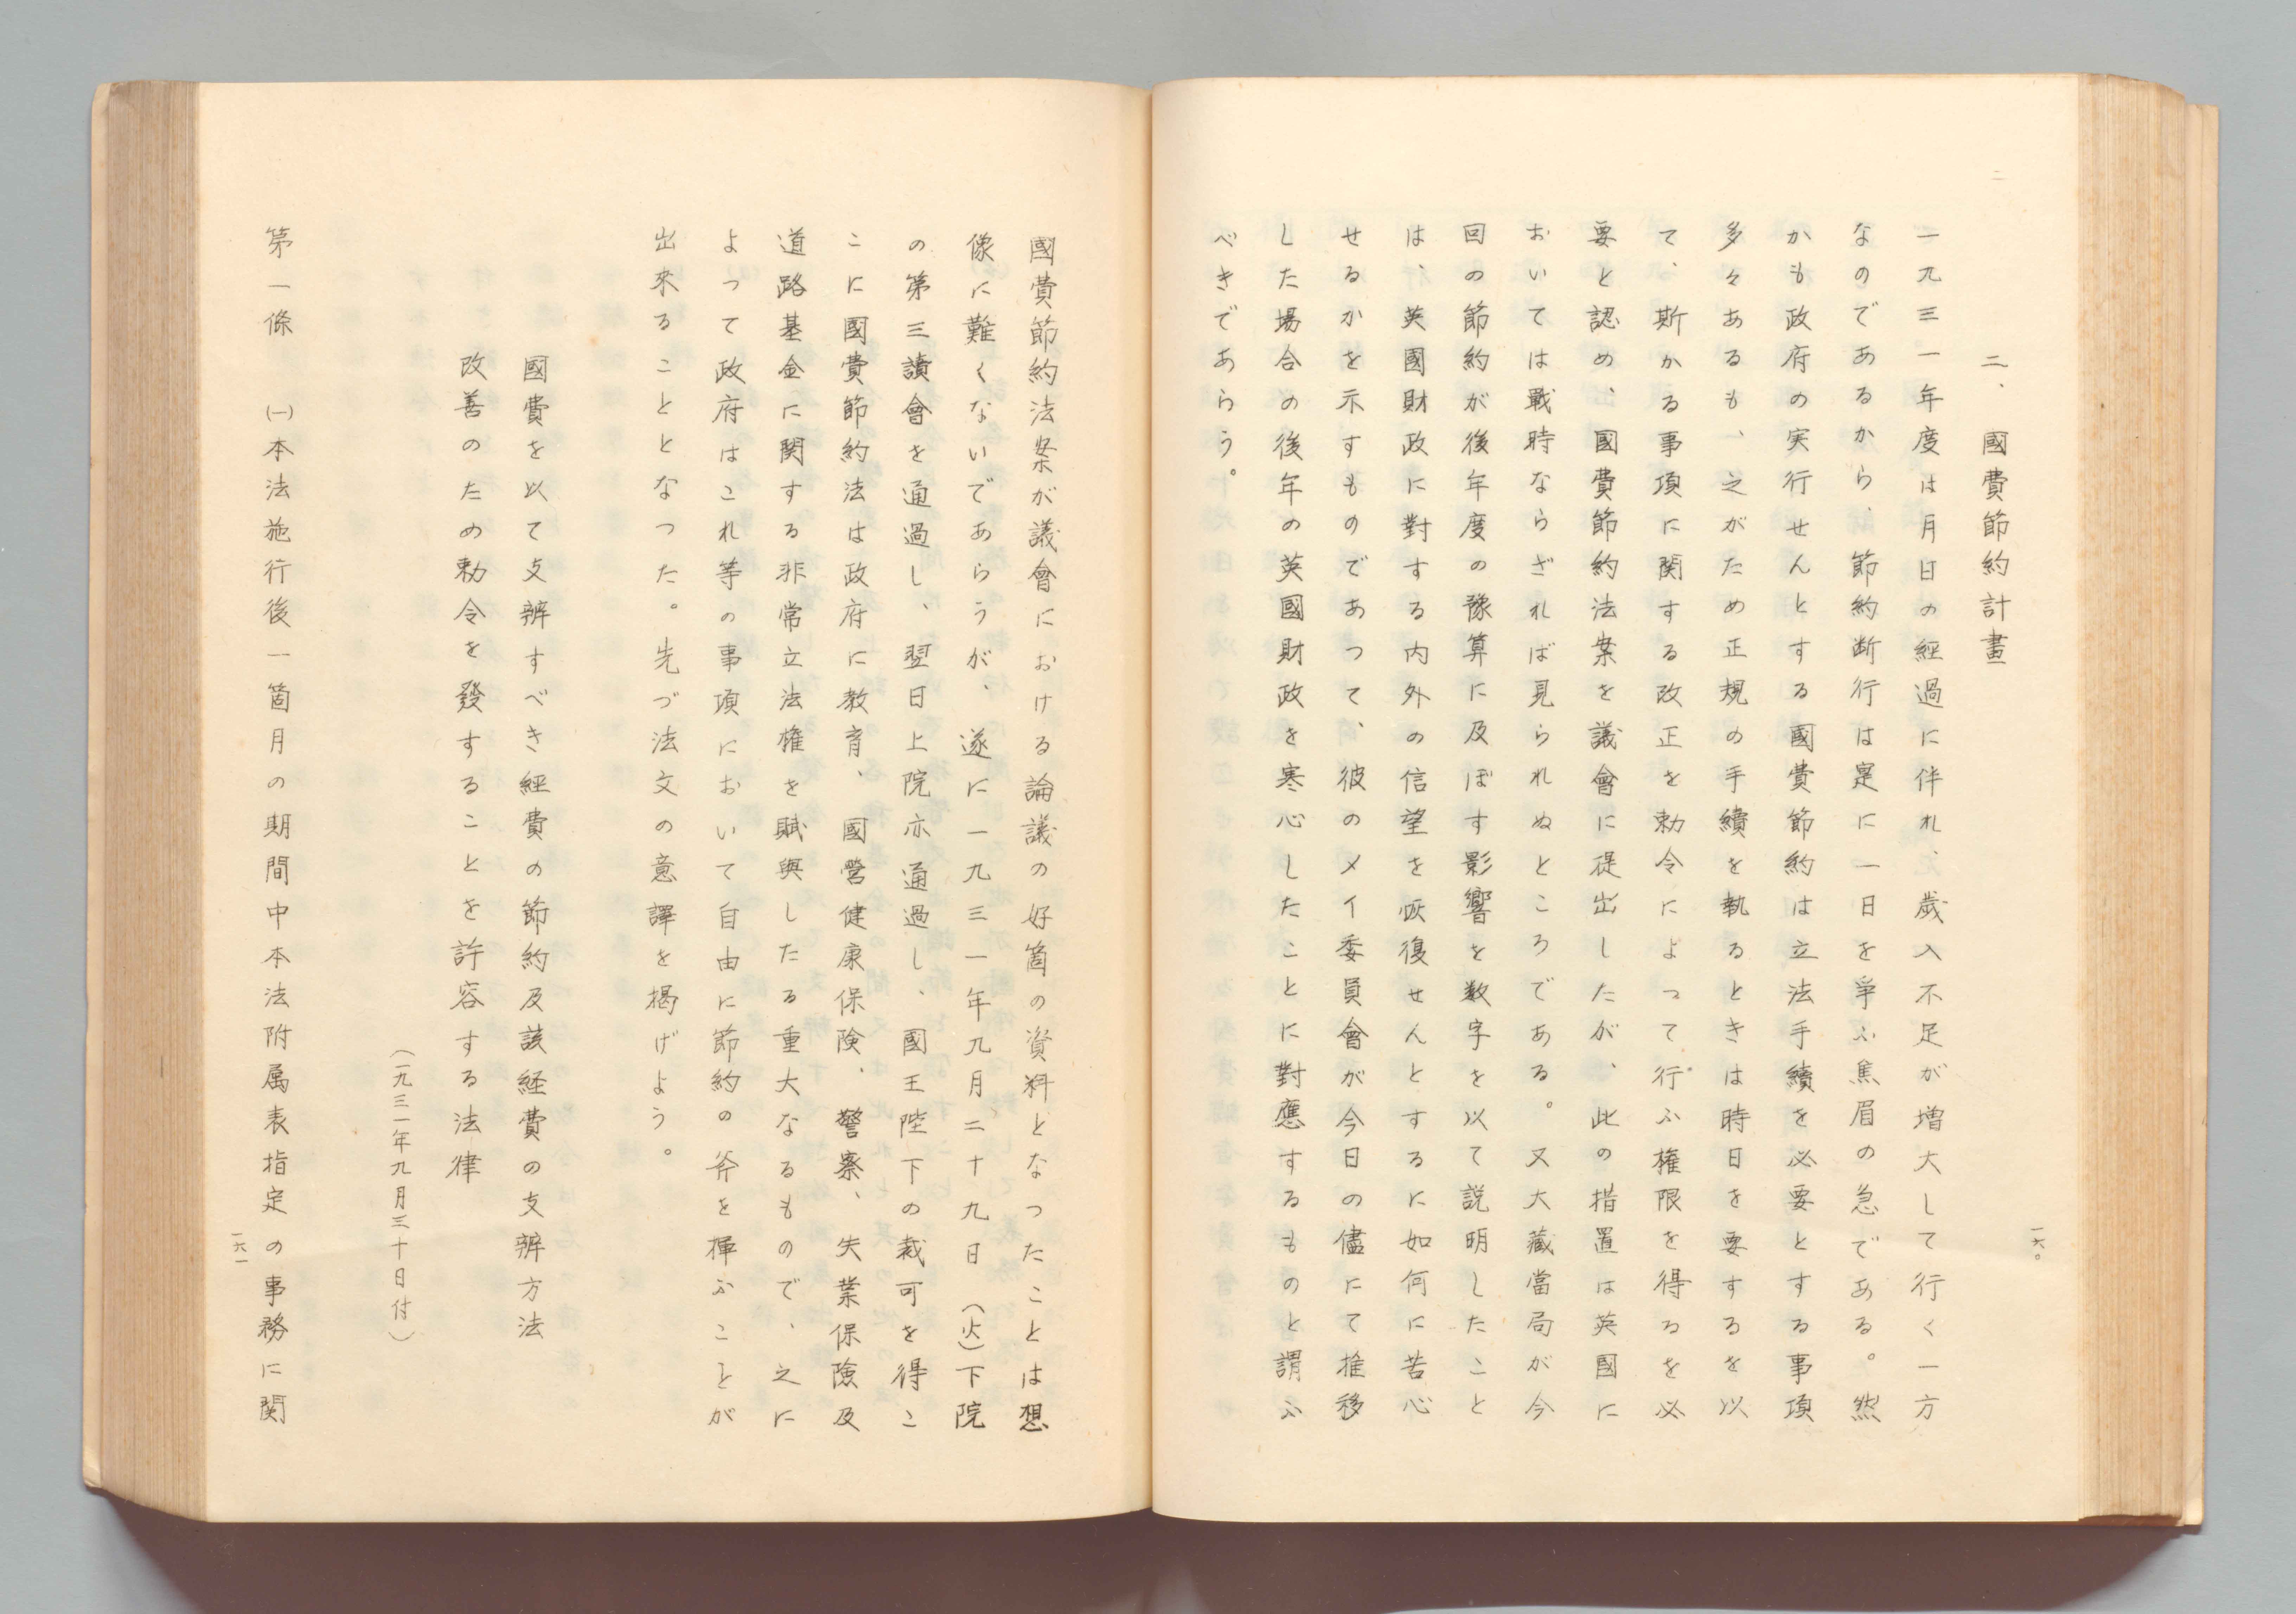 二、國費節約計畫
一九三一年度は月日の經過に伴れ、歲入不足が増大して行く一方
なのであるから、節約断行は寔に一日を爭ふ焦眉の急である。然
かも政府の実行せんとする國費節約は立法手續を必要とする事項
多々あるも、之がため正規の手續を執るときは時日を要するを以
て、斯かる事項に関する改正を勅令によつて行ふ権限を得るを必
要と認め、國費節約法案を議會に提出したが、此の措置は英國に
おいては戰時ならざれば見られぬところである。又大藏當局が今
回の節約が後年度の豫算に及ぼす影響を数字を以て説明したこと
は、英國財政に對する内外の信望を恢復せんとするに如何に苦心
せるかを示すものであつて、彼のメイ委員會が今日の儘にて推移
した場合の後年の英國財政を寒心したことに對應するものと謂ふ
べきであらう。
一六〇
國費節約法案が議會における論議の好箇の資料となつたことは想
像に難くないであらうが、遂に一九三一年九月二十九日（火）下院
の第三讀會を通過し、翌日上院亦通過し、國王陛下の裁可を得こ
こに國費節約法は政府に教育、國營健康保険、警察、失業保險及
道路基金に関する非常立法権を賦與したる重大なるもので、之に
よつて政府はこれ等の事項において自由に節約の斧を揮ふことが
出來ることとなつた。先づ法文の意譯を掲げよう。
國費を以て支辨すべき経費の節約及該経費の支辨方法
改善のため勅令を發することを許容する法律
（一九三一年九月三十日付）
第一條　㈠本法施行後一箇月の期間中本法附属表指定の事務に関
一六一